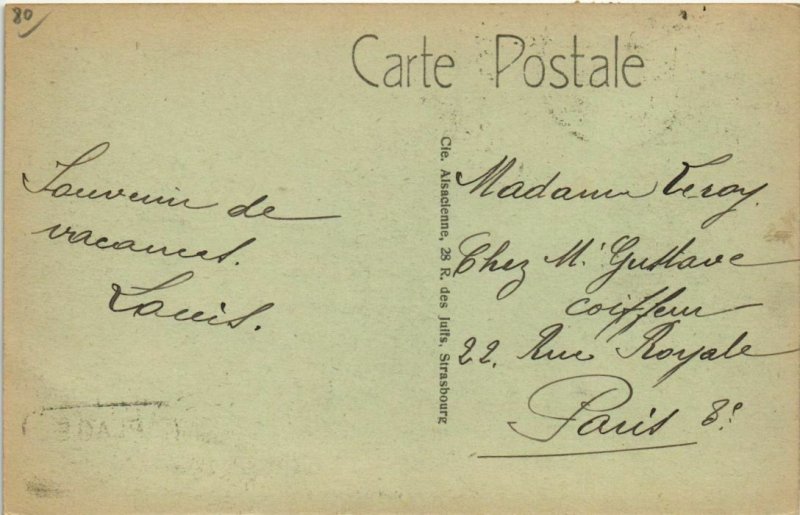 80
Carte Postale
Souvenir de
vacances.
Louis.
Cie. Alsacienne, 28 R. des Juifs, Strasbourg
Madame Leroy.
Chez Mr Gustave
coiffeur
22. Rue Royale
Paris 8e